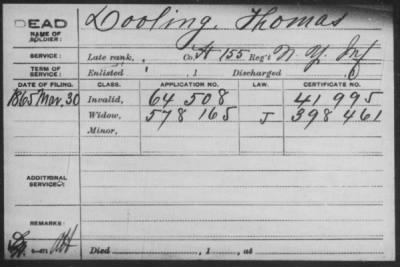 DEAD
NAME OF SOLDIER: Dooling, Thomas
SERVICE: Late rank, , Co. H 155 Reg't N. Y. Inf
TERM OF SERVICE: Enlisted , 1 Discharged , 1
DATE OF FILING. CLASS. APPLICATION NO. LAW. CERTIFICATE NO.
1865 Mar. 30 Invalid, 64 508 41 995
Widow, 578 165 J 398 461
Minor,
ADDITIONAL SERVICE:
REMARKS:
Died , 1 , at